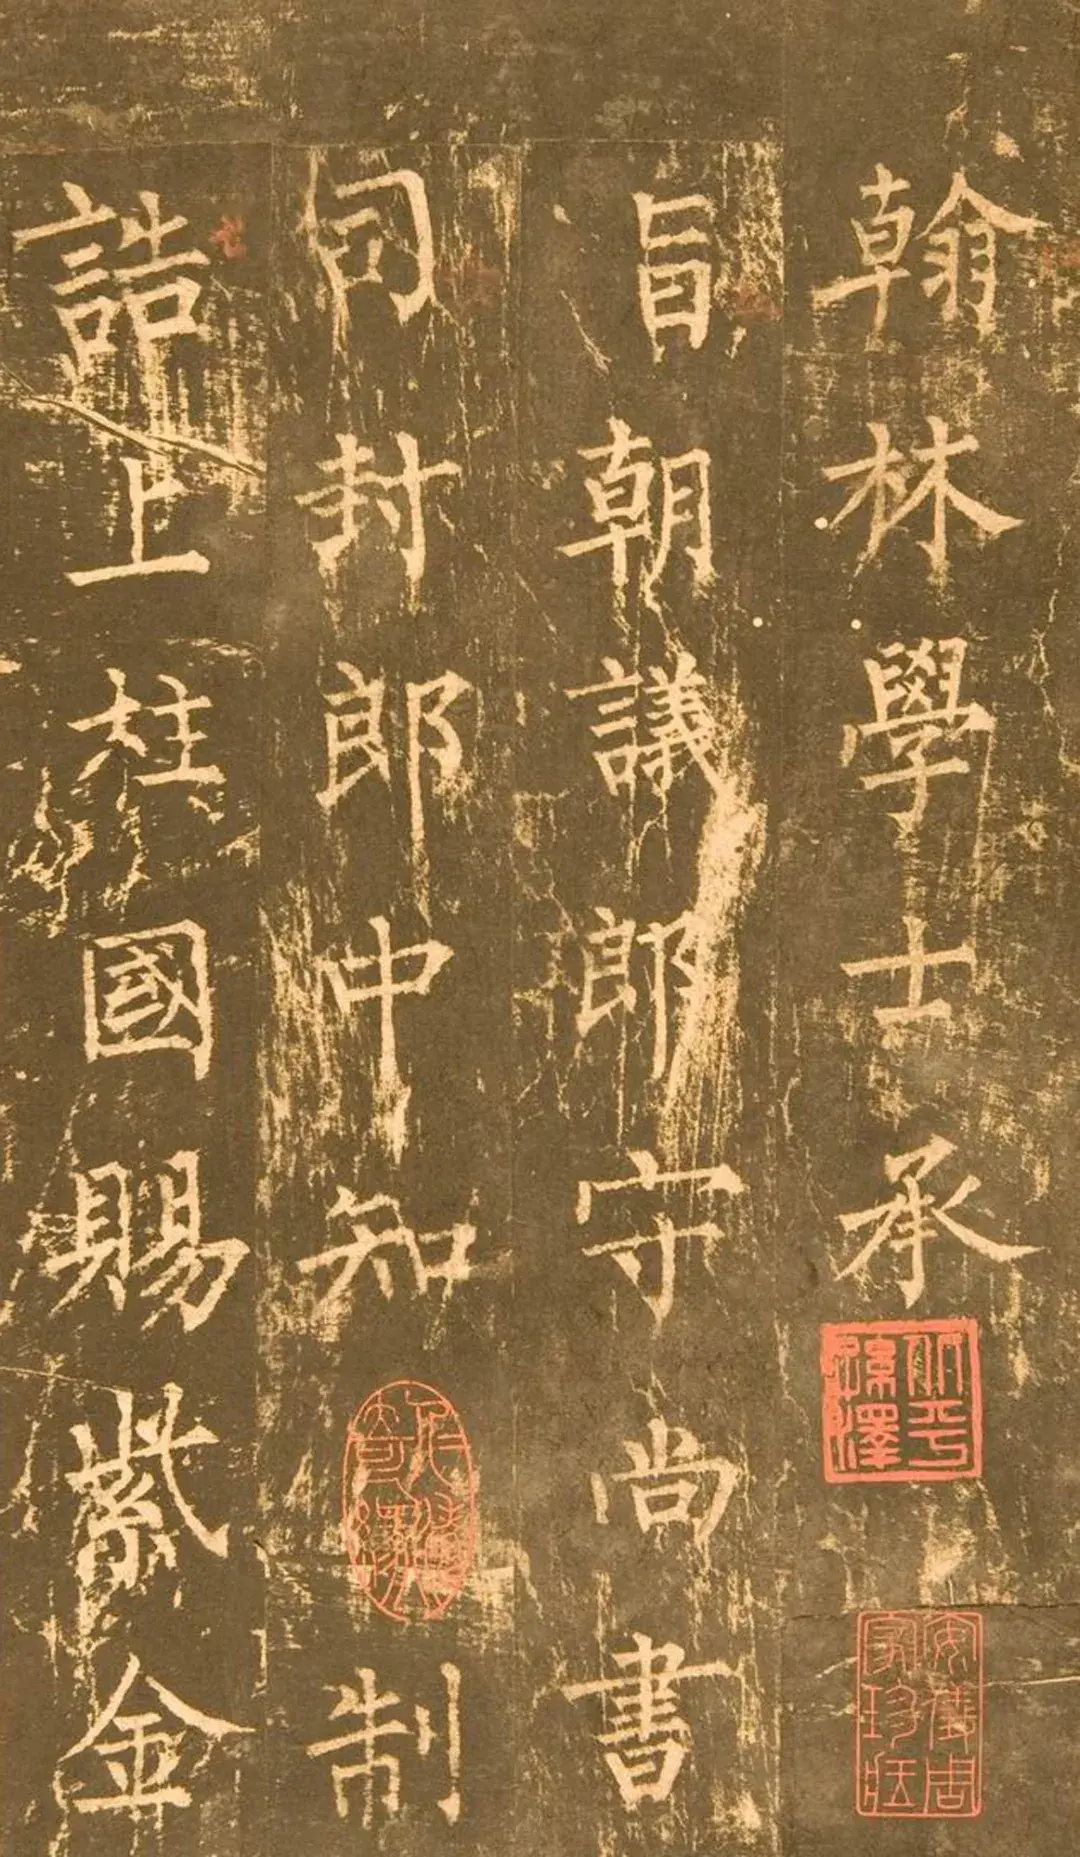 翰林學士承
旨朝議郎守尚書
司封郎中知制
誥上柱國賜紫金
安儀周家珍藏